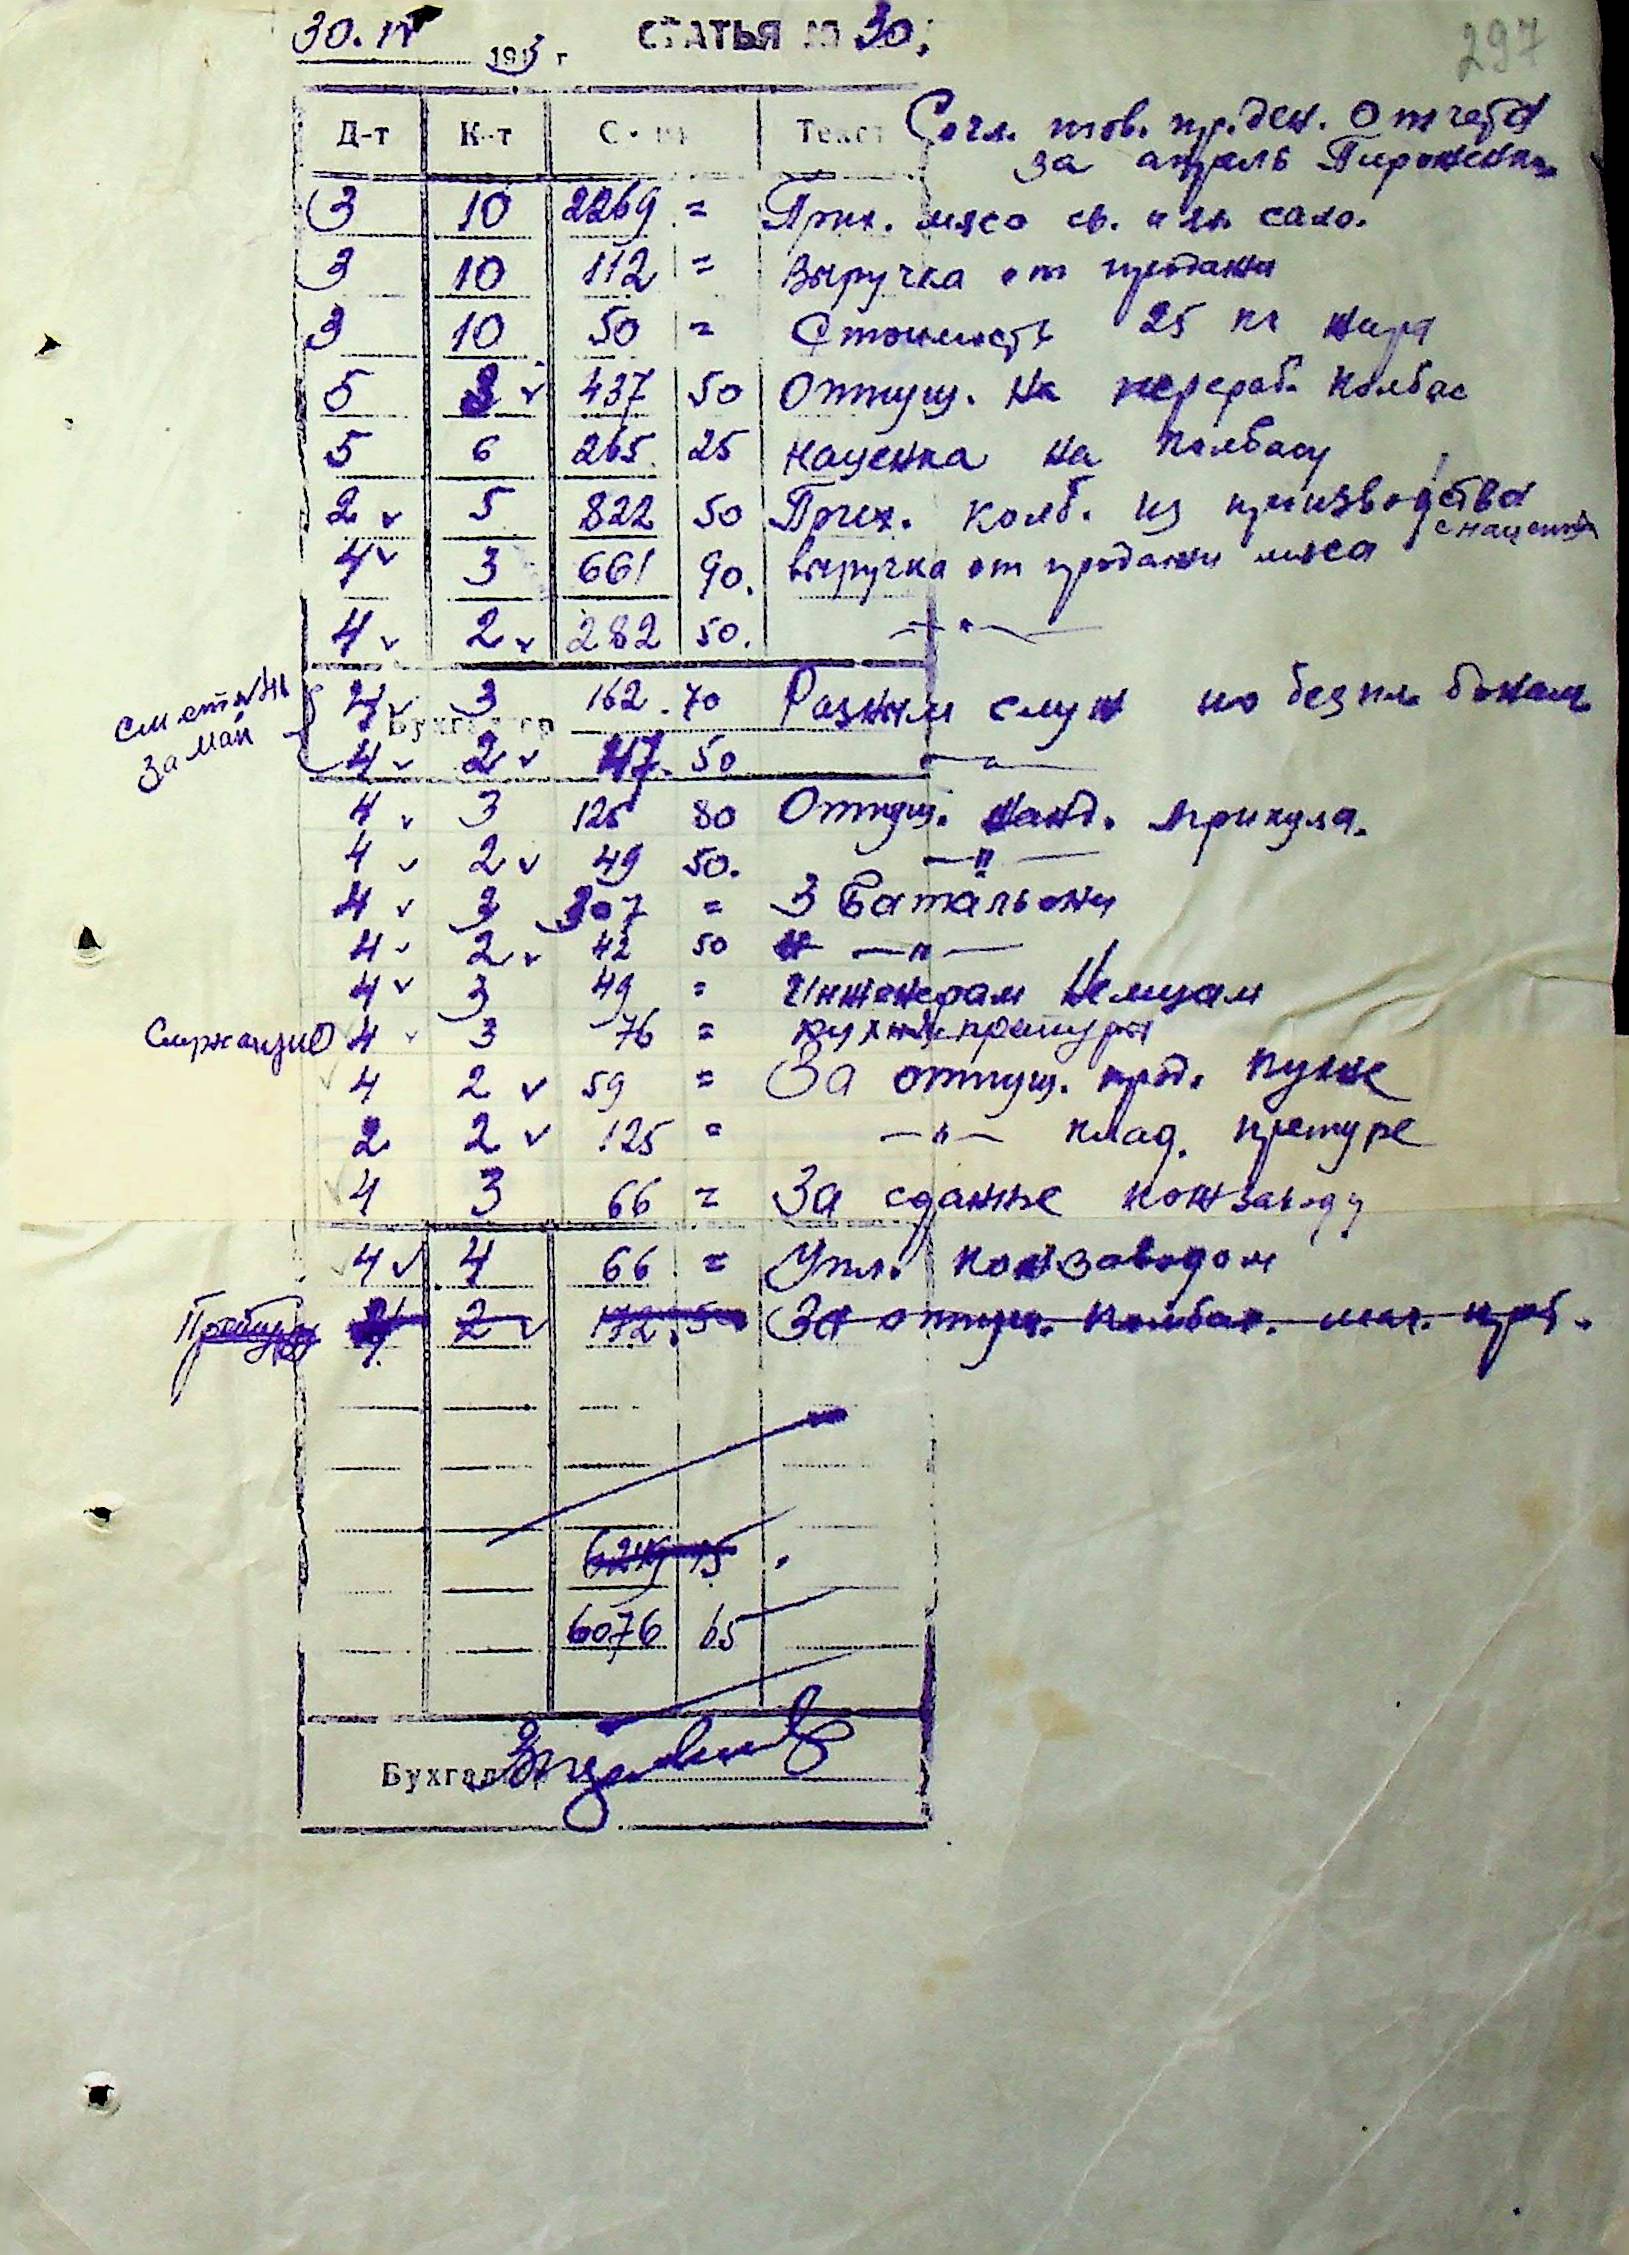 297
30. IV 1943 г СТАТЬЯ № 30.
Д-т К-т Текст Согл. тов. пр. ден. отчета
за апрель
3 10 2269 = Прих. мясо св. и сало.
3 10 112 = Выручка от продажи
3 10 50 = Стоимость 25 кг жира
5 3 437 50 Отпущ. на перераб. колбас
5 6 265 25 наценка на колбасу
2 5 822 50 Прих. колб. из производства
с наценк
4 3 661 90. выручка от продажи мяса
4 2 282 50. — " —
см ст №41
за май
4 3 162.70 Разным служ по безпл. бонам
Бухгалтер
4 2 50 — " —
4 3 125 80 Отпущ.
4 2 49 50. — " —
4 3 307 = 3 Батальону
4 2 42 50 — " —
4 3 49 = Инженерам Немцам
4 3 76 = кухня претуры
4 2 59 = За отпущ. прод.
2 2 125 = — " — клад. претуре
4 3 66 = За сданные кожзаводу
4 4 66 = Упл. кожзаводом
Претуры 2 172.50 За отпущ. колбас.
6249 15
6076 65
Бухгалтер